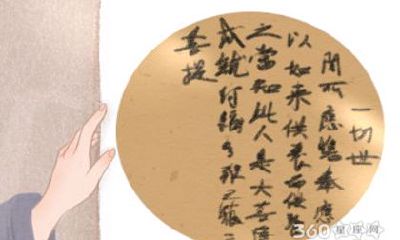 一切世
間所應瞻奉應
以如来供養而供養
之當知此人是大菩薩
成就阿耨多羅三藐三
菩提
360星座网